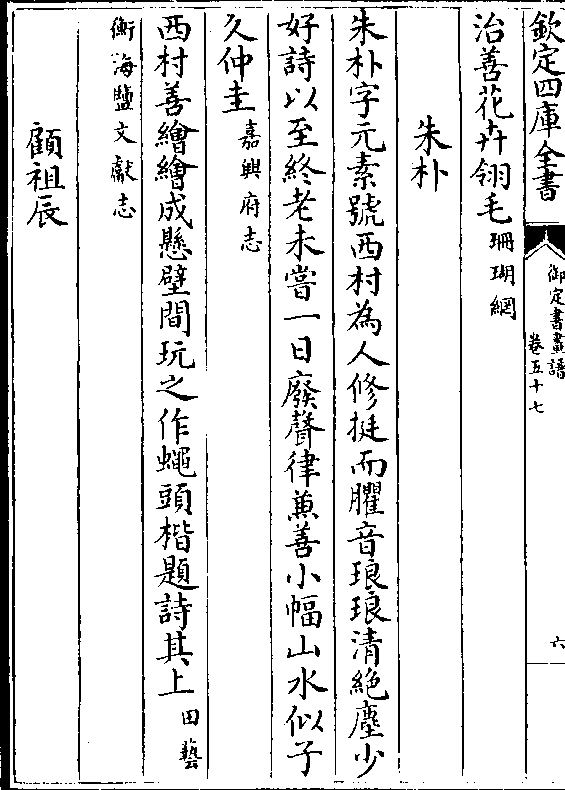 欽定四庫全書
御定書畫譜
卷五十七
六
治善花卉翎毛珊瑚網
朱朴
朱朴字元素號西村為人修挺而臞音琅琅清絶塵少
好詩以至終老未嘗一日廢聲律兼善小幅山水似子
久仲圭嘉興府志
西村善繪繪成懸壁間玩之作蠅頭楷題詩其上田藝
衡海鹽文獻志
顧祖辰